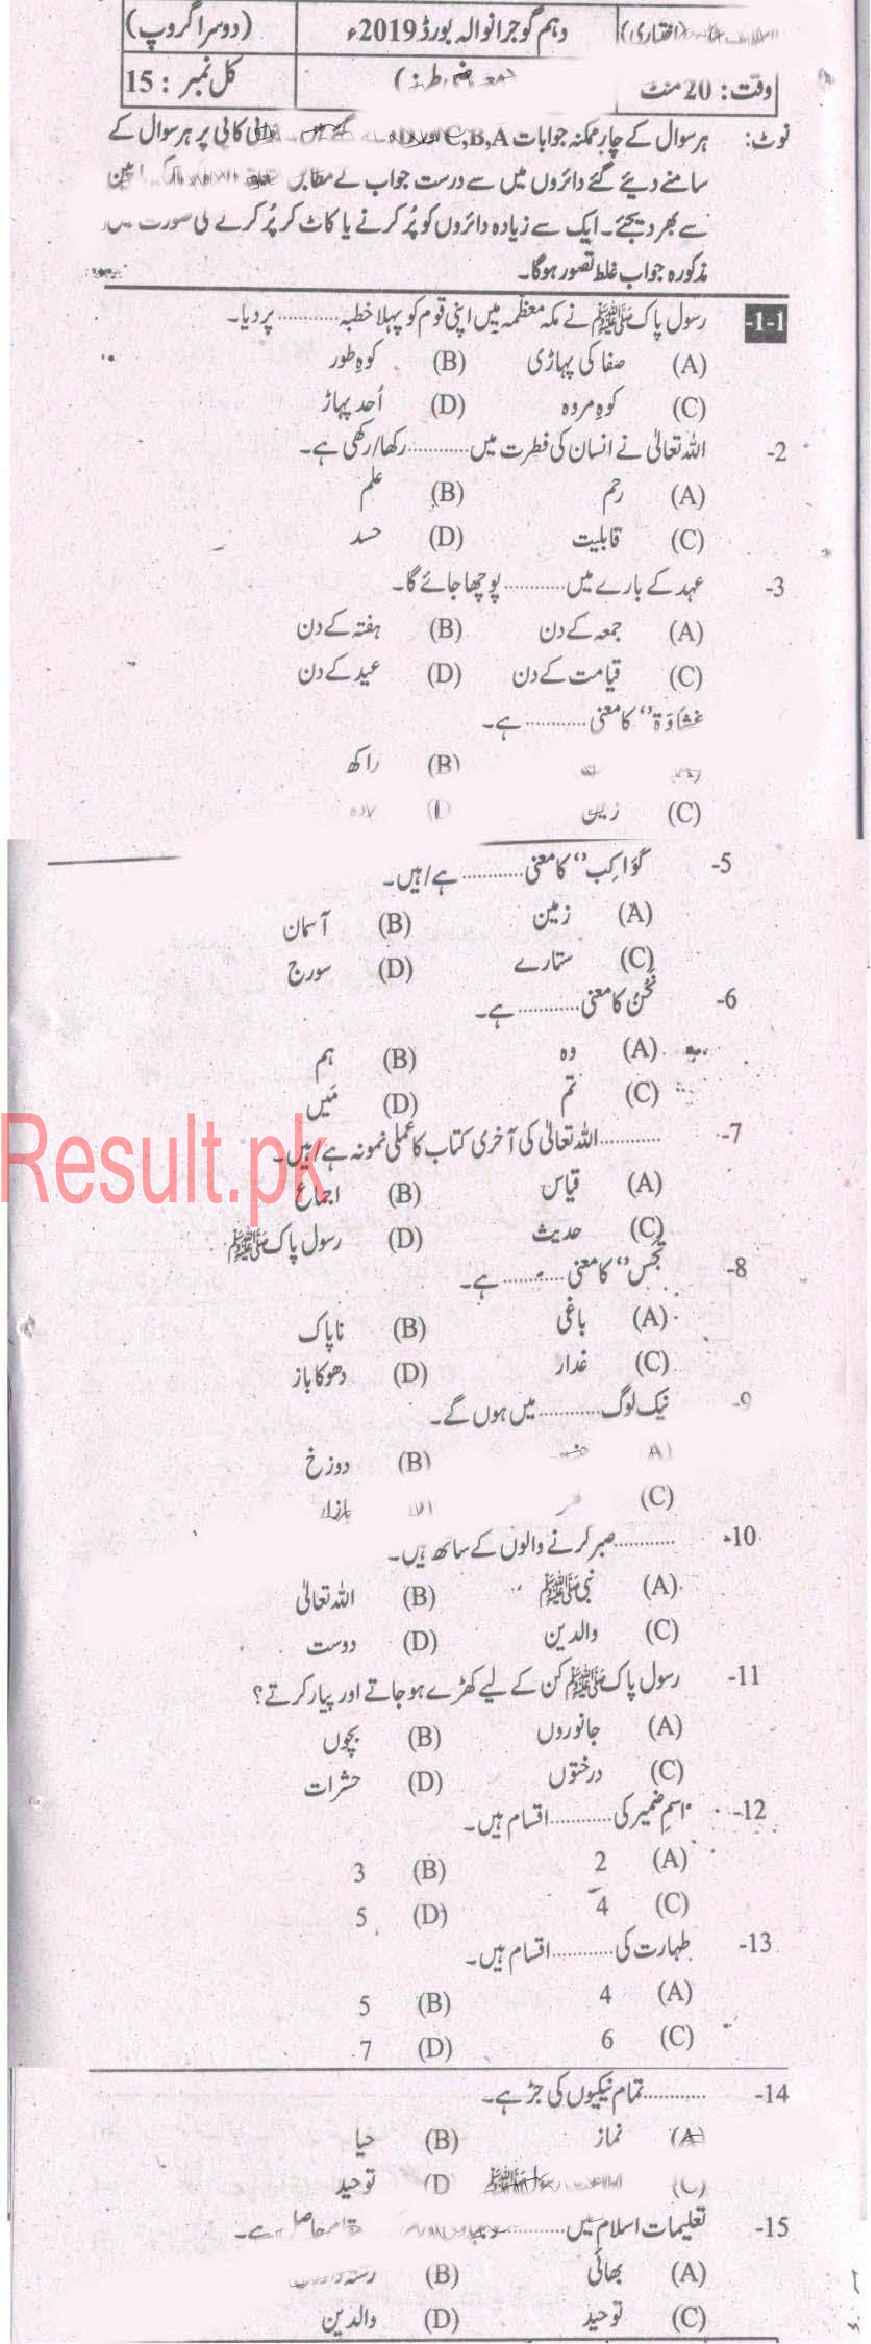 (اختیاری) دہم گوجرانوالہ بورڈ 2019ء (دوسرا گروپ)
وقت: 20 منٹ کل نمبر: 15
نوٹ: ہر سوال کے چار ممکنہ جوابات C,B,A کاپی پر ہر سوال کے
سامنے دیئے گئے دائروں میں سے درست جواب کے مطابق
سے بھر دیجئے۔ ایک سے زیادہ دائروں کو پُر کرنے یا کاٹ کر پُر کرنے کی صورت میں
مذکورہ جواب غلط تصور ہوگا۔
1-1- رسول پاک ﷺ نے مکہ معظمہ میں اپنی قوم کو پہلا خطبہ ............ پر دیا۔
(A) صفا کی پہاڑی (B) کوہِ طور
(C) کوہِ مروہ (D) اُحد پہاڑ
2- اللہ تعالیٰ نے انسان کی فطرت میں ............ رکھا/رکھی ہے۔
(A) رحم (B) علم
(C) قابلیت (D) حسد
3- عہد کے بارے میں ............ پوچھا جائے گا۔
(A) جمعہ کے دن (B) ہفتہ کے دن
(C) قیامت کے دن (D) عید کے دن
غِشَاوَۃ" کا معنی ............ ہے۔
(B) راکھ
(C) زمین
5- کَوَاکِب" کا معنی ............ ہے/ہیں۔
(A) زمین (B) آسمان
(C) ستارے (D) سورج
6- نَحْنُ کا معنی ............ ہے۔
(A) وہ (B) ہم
(C) تم (D) مَیں
7- ............ اللہ تعالیٰ کی آخری کتاب کا عملی نمونہ ہے/ہیں۔
(A) قیاس (B) اجماع
(C) حدیث (D) رسول پاک ﷺ
Result.pk
8- نَجَس" کا معنی ............ ہے۔
(A) باغی (B) ناپاک
(C) غدار (D) دھوکا باز
9- نیک لوگ ............ میں ہوں گے۔
(A) (B) دوزخ
(C) بازار
10- ............ صبر کرنے والوں کے ساتھ ہیں۔
(A) نبی ﷺ (B) اللہ تعالیٰ
(C) والدین (D) دوست
11- رسول پاک ﷺ کن کے لیے کھڑے ہو جاتے اور پیار کرتے؟
(A) جانوروں (B) بچوں
(C) درختوں (D) حشرات
12- اسمِ ضمیر کی ............ اقسام ہیں۔
(A) 2 (B) 3
(C) 4 (D) 5
13- طہارت کی ............ اقسام ہیں۔
(A) 4 (B) 5
(C) 6 (D) 7
14- ............ تمام نیکیوں کی جڑ ہے۔
(A) نماز (B) حیا
(C) ﷺ (D) توحید
15- تعلیمات اسلام میں ............ حاصل ہے۔
(A) بھائی (B)
(C) توحید (D) والدین